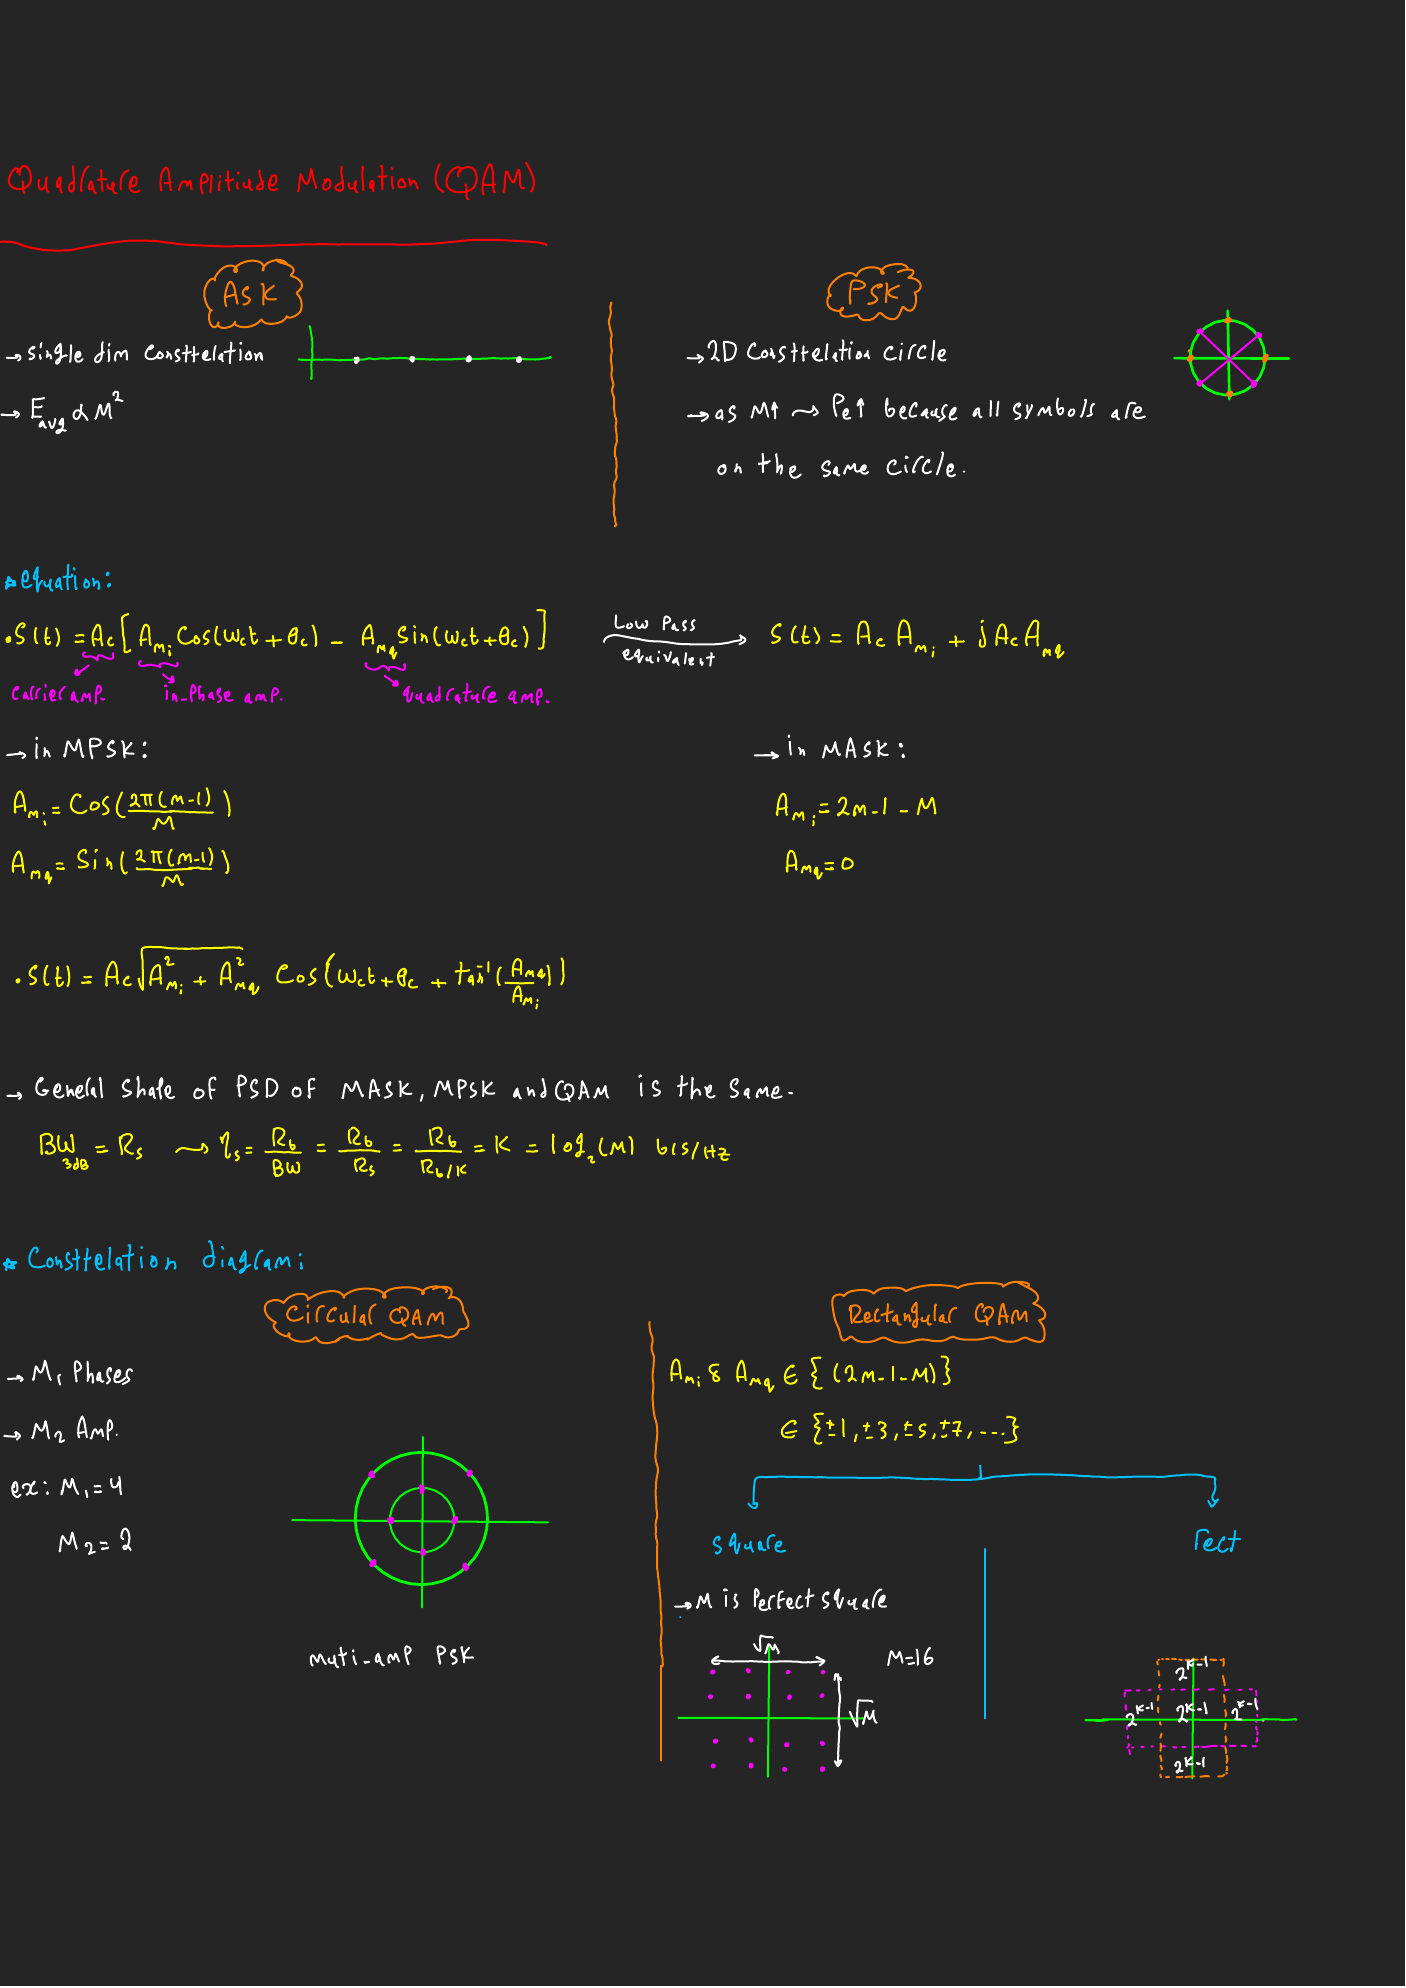 Quadrature Amplitiude Modulation (QAM)
ASK
→ single dim Consttelation
→ E_avg ∝ M²
PSK
→ 2D Consttelation circle
→ as M↑ ⇝ Pe↑ because all symbols are
on the same circle.
* equation:
• S(t) = Ac [ A_mi Cos(ωct + θc) − A_mq Sin(ωct + θc) ]
Low Pass
equivalent
S(t) = Ac A_mi + j Ac A_mq
carrier amp.
in-phase amp.
quadrature amp.
→ in MPSK:
A_mi = Cos( 2π(m-1) / M )
A_mq = Sin( 2π(m-1) / M )
→ in MASK:
A_mi = 2m-1-M
A_mq = 0
• S(t) = Ac √(A²_mi + A²_mq) Cos( ωct + θc + tan⁻¹( A_mq / A_mi ) )
→ General shape of PSD of MASK, MPSK and QAM is the same.
BW_3dB = Rs ⇝ ηs = Rb / BW = Rb / Rs = Rb / Rb/K = K = log₂(M) b/s/Hz
* Consttelation diagram:
Circular QAM
→ M₁ Phases
→ M₂ Amp.
ex: M₁ = 4
M₂ = 2
muti-amp PSK
Rectangular QAM
A_mi & A_mq ∈ { (2m-1-M) }
∈ { ±1, ±3, ±5, ±7, ... }
square
→ M is Perfect square
√M
M=16
√M
rect
2^K-1
2^K-1 2^K-1 2^K-1
2^K-1